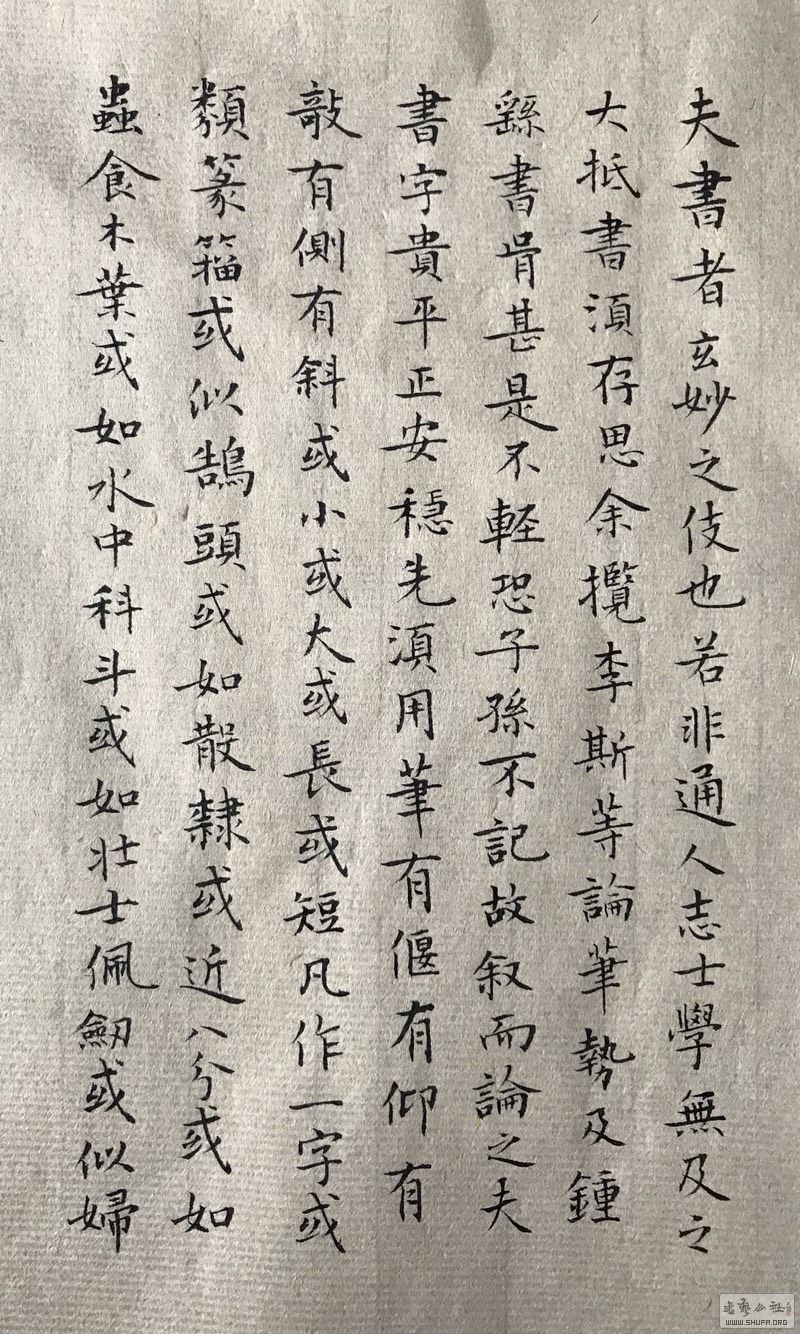 夫書者玄妙之伎也若非通人志士學無及之
大抵書須存思余攬李斯等論筆勢及鍾
繇書骨甚是不輕恐子孫不記故叙而論之夫
書字貴平正安穩先須用筆有偃有仰有
敧有側有斜或小或大或長或短凡作一字或
類篆籀或似鵠頭或如散隸或近八分或如
蟲食木葉或如水中科斗或如壯士佩劒或似婦
書藝公社
WWW.SHUFA.ORG